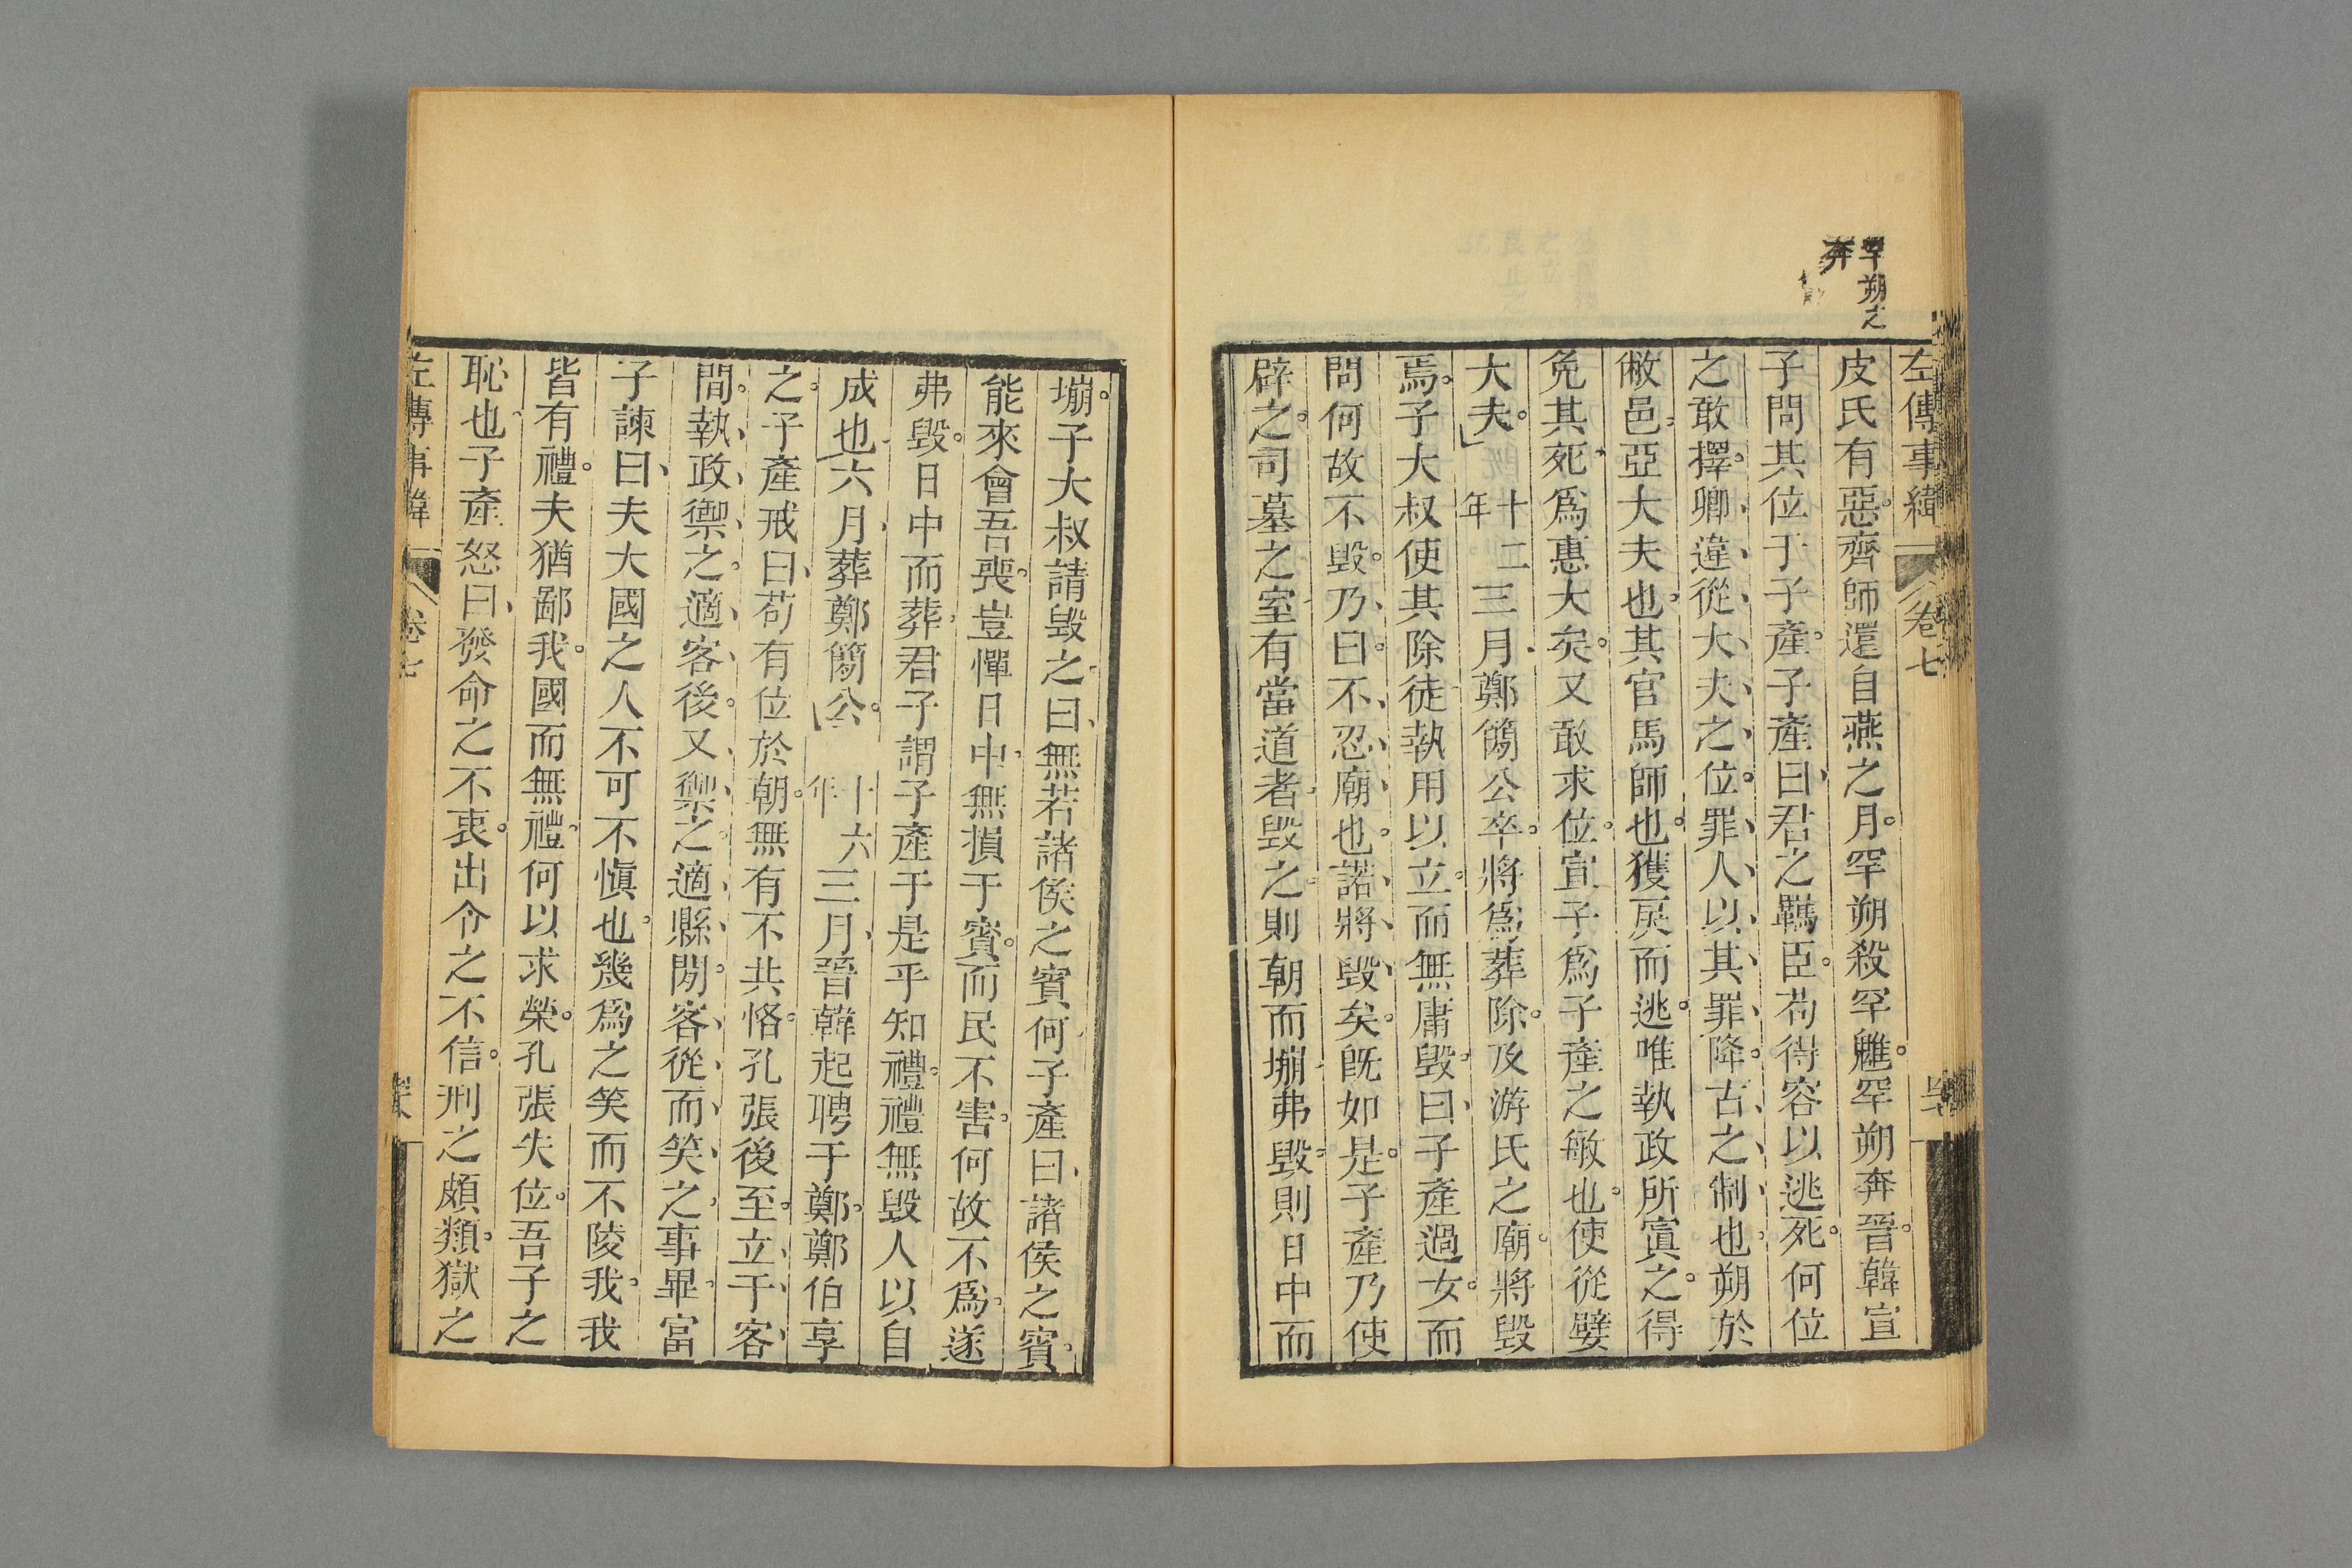 罕朔之
奔
左傳事緯
卷七
皮氏有惡。齊師還自燕之月。罕朔殺罕魋。罕朔奔晉。韓宣
子問其位于子產。子產曰、君之羈臣。苟得容以逃死。何位
之敢擇。卿、違、從、大、夫、之、位。罪、人、以、其、罪、降。古、之、制、也、朔於
敝邑。亞大夫也。其官馬師也。獲戾而逃。唯執政所寘之。得
免其死、爲惠大矣。又敢求位。宣子爲子產之敏也。使從嬖
大夫。」十二年三月、鄭簡公卒。將爲葬除。及游氏之廟。將毀
焉。子大叔使其除徒執用以立。而無庸毀。曰、子產過女。而
問何故不毀。乃、曰。不、忍、廟、也。諾、將、毀、矣。旣如是。子產乃使
辟之。司墓之室有當道者、毀之。則朝而塴、弗毀。則日中而
塴。子大叔請毀之、曰、無若諸侯之賓何、子產曰、諸侯之賓。
能來會吾喪。豈憚日中、無損于賓。而民不害。何故不爲。遂
弗毀。日中而葬、君子謂子產于是乎知禮。禮無毀人以自
成也、六月、葬鄭簡公。」十六年三月、晉韓起聘于鄭。鄭伯享
之。子產戒曰、苟有位於朝。無有不共恪。孔張後至。立、于、客、
間。執、政、禦、之。適、客、後。又、禦、之。適、縣、間。客、從、而、笑、之、事畢。富
子諫曰、夫大國之人不可不愼也。幾爲之笑而不陵我。我
皆有禮。夫猶鄙我。國而無禮。何以求榮。孔張失位。吾子之
恥也、子產怒曰、發命之不衷。出令之不信。刑之頗類。獄之
左傳事緯
卷七